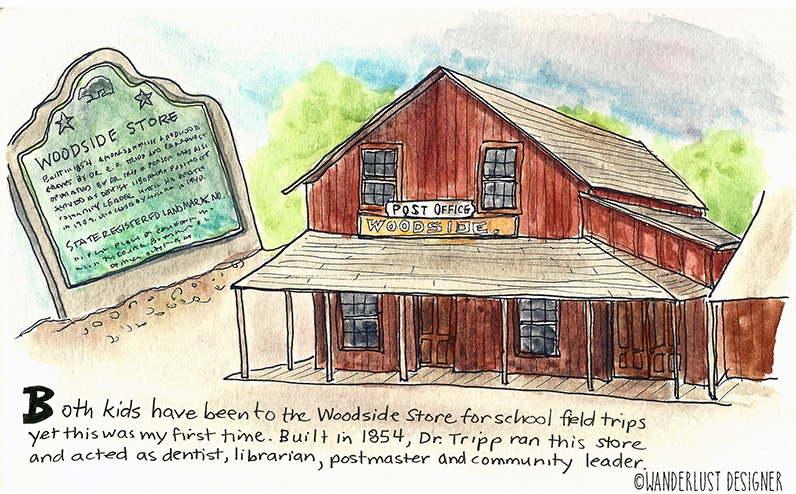 WOODSIDE STORE
BUILT IN 1854 AMONG SAWMILLS & REDWOOD
GROVES BY DR. R.O. TRIPP AND
OPERATED BY DR. TRIPP A PERSON WHO ALSO
SERVED AS DENTIST LIBRARIAN POSTMASTER
COMMUNITY LEADER UNTIL HIS DEATH
IN 1909.
STATE REGISTERED LANDMARK NO.
POST OFFICE
WOODSIDE.
Both kids have been to the Woodside Store for school field trips
yet this was my first time. Built in 1854, Dr. Tripp ran this store
and acted as dentist, librarian, postmaster and community leader.
©WANDERLUST DESIGNER